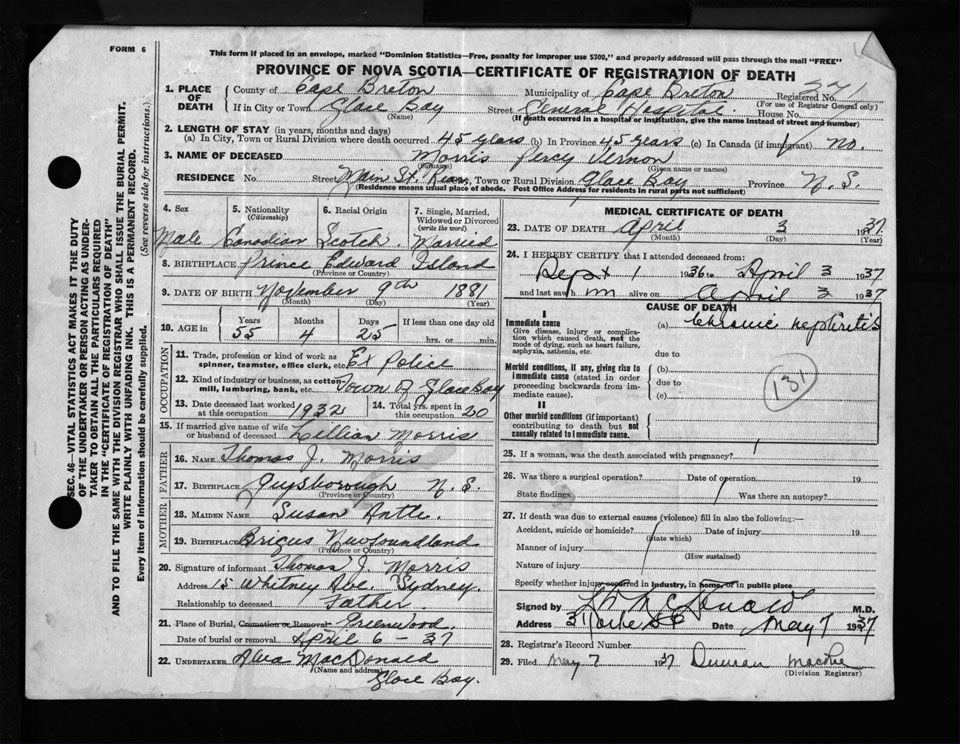 FORM 6
This form if placed in an envelope, marked "Dominion Statistics—Free, penalty for improper use $300," and properly addressed will pass through the mail "FREE"
PROVINCE OF NOVA SCOTIA—CERTIFICATE OF REGISTRATION OF DEATH
1. PLACE OF DEATH County of Cape Breton Municipality of Cape Breton Registered No. 371
(For use of Registrar General only)
If in City or Town Glace Bay Street General Hospital House No.
(Name) (If death occurred in a hospital or institution, give the name instead of street and number)
2. LENGTH OF STAY (in years, months and days)
(a) In City, Town or Rural Division where death occurred 45 years (b) In Province 45 years (c) In Canada (if immigrant) no.
3. NAME OF DECEASED Morris Percy Vernon
(Surname) (Given name or names)
RESIDENCE No. Street Main St. Rear, Town or Rural Division Glace Bay Province N.S.
(Residence means usual place of abode. Post Office Address for residents in rural parts not sufficient)
4. Sex 5. Nationality (Citizenship) 6. Racial Origin 7. Single, Married, Widowed or Divorced (write the word)
Male Canadian Scotch. Married
8. BIRTHPLACE Prince Edward Island
(Province or Country)
9. DATE OF BIRTH November 9th 1881
(Month) (Day) (Year)
10. AGE in Years Months Days If less than one day old
55 4 25 hrs. or min.
OCCUPATION
11. Trade, profession or kind of work as spinner, teamster, office clerk, etc. Ex Police
12. Kind of industry or business, as cotton mill, lumbering, bank, etc. Town of Glace Bay
13. Date deceased last worked at this occupation 1932 14. Total yrs. spent in this occupation 20
15. If married give name of wife or husband of deceased Lillian Morris
FATHER
16. NAME Thomas J. Morris
17. BIRTHPLACE Guysborough N.S.
(Province or Country)
MOTHER
18. MAIDEN NAME Susan Antle.
19. BIRTHPLACE Brigus Newfoundland
(Province or Country)
20. Signature of informant Thomas J. Morris
Address 15 Whitney Ave. Sydney.
Relationship to deceased Father.
21. Place of Burial, Cremation or Removal Greenwood.
Date of burial or removal April 6 - 37
22. UNDERTAKER Alva MacDonald
(Name and address)
Glace Bay.
MEDICAL CERTIFICATE OF DEATH
23. DATE OF DEATH April 3 1937
(Month) (Day) (Year)
24. I HEREBY CERTIFY that I attended deceased from:
Sept 1 1936 to April 3 1937
and last saw him alive on April 3 1937
CAUSE OF DEATH
I
Immediate cause (a) Chronic nephritis
Give disease, injury or complication which caused death, not the mode of dying, such as heart failure, asphyxia, asthenia, etc.
due to
Morbid conditions, if any, giving rise to immediate cause (stated in order proceeding backwards from immediate cause).
(b)
due to
(c)
131
II
Other morbid conditions (if important) contributing to death but not causally related to immediate cause.
25. If a woman, was the death associated with pregnancy?
26. Was there a surgical operation? Date of operation 19
State findings Was there an autopsy?
27. If death was due to external causes (violence) fill in also the following:—
Accident, suicide or homicide? Date of injury 19
(State which)
Manner of injury
(How sustained)
Nature of injury
Specify whether injury occurred in industry, in home, or in public place
Signed by McDonald M.D.
Address Date May 7 1937
28. Registrar's Record Number
29. Filed May 7 1937 Duncan
(Division Registrar)
SEC. 46—VITAL STATISTICS ACT MAKES IT THE DUTY
OF THE UNDERTAKER OR PERSON ACTING AS UNDER-
TAKER TO OBTAIN ALL THE PARTICULARS REQUIRED
IN THE "CERTIFICATE OF REGISTRATION OF DEATH"
AND TO FILE THE SAME WITH THE DIVISION REGISTRAR WHO SHALL ISSUE THE BURIAL PERMIT.
WRITE PLAINLY WITH UNFADING INK. THIS IS A PERMANENT RECORD.
Every item of information should be carefully supplied. (See reverse side for instructions.)